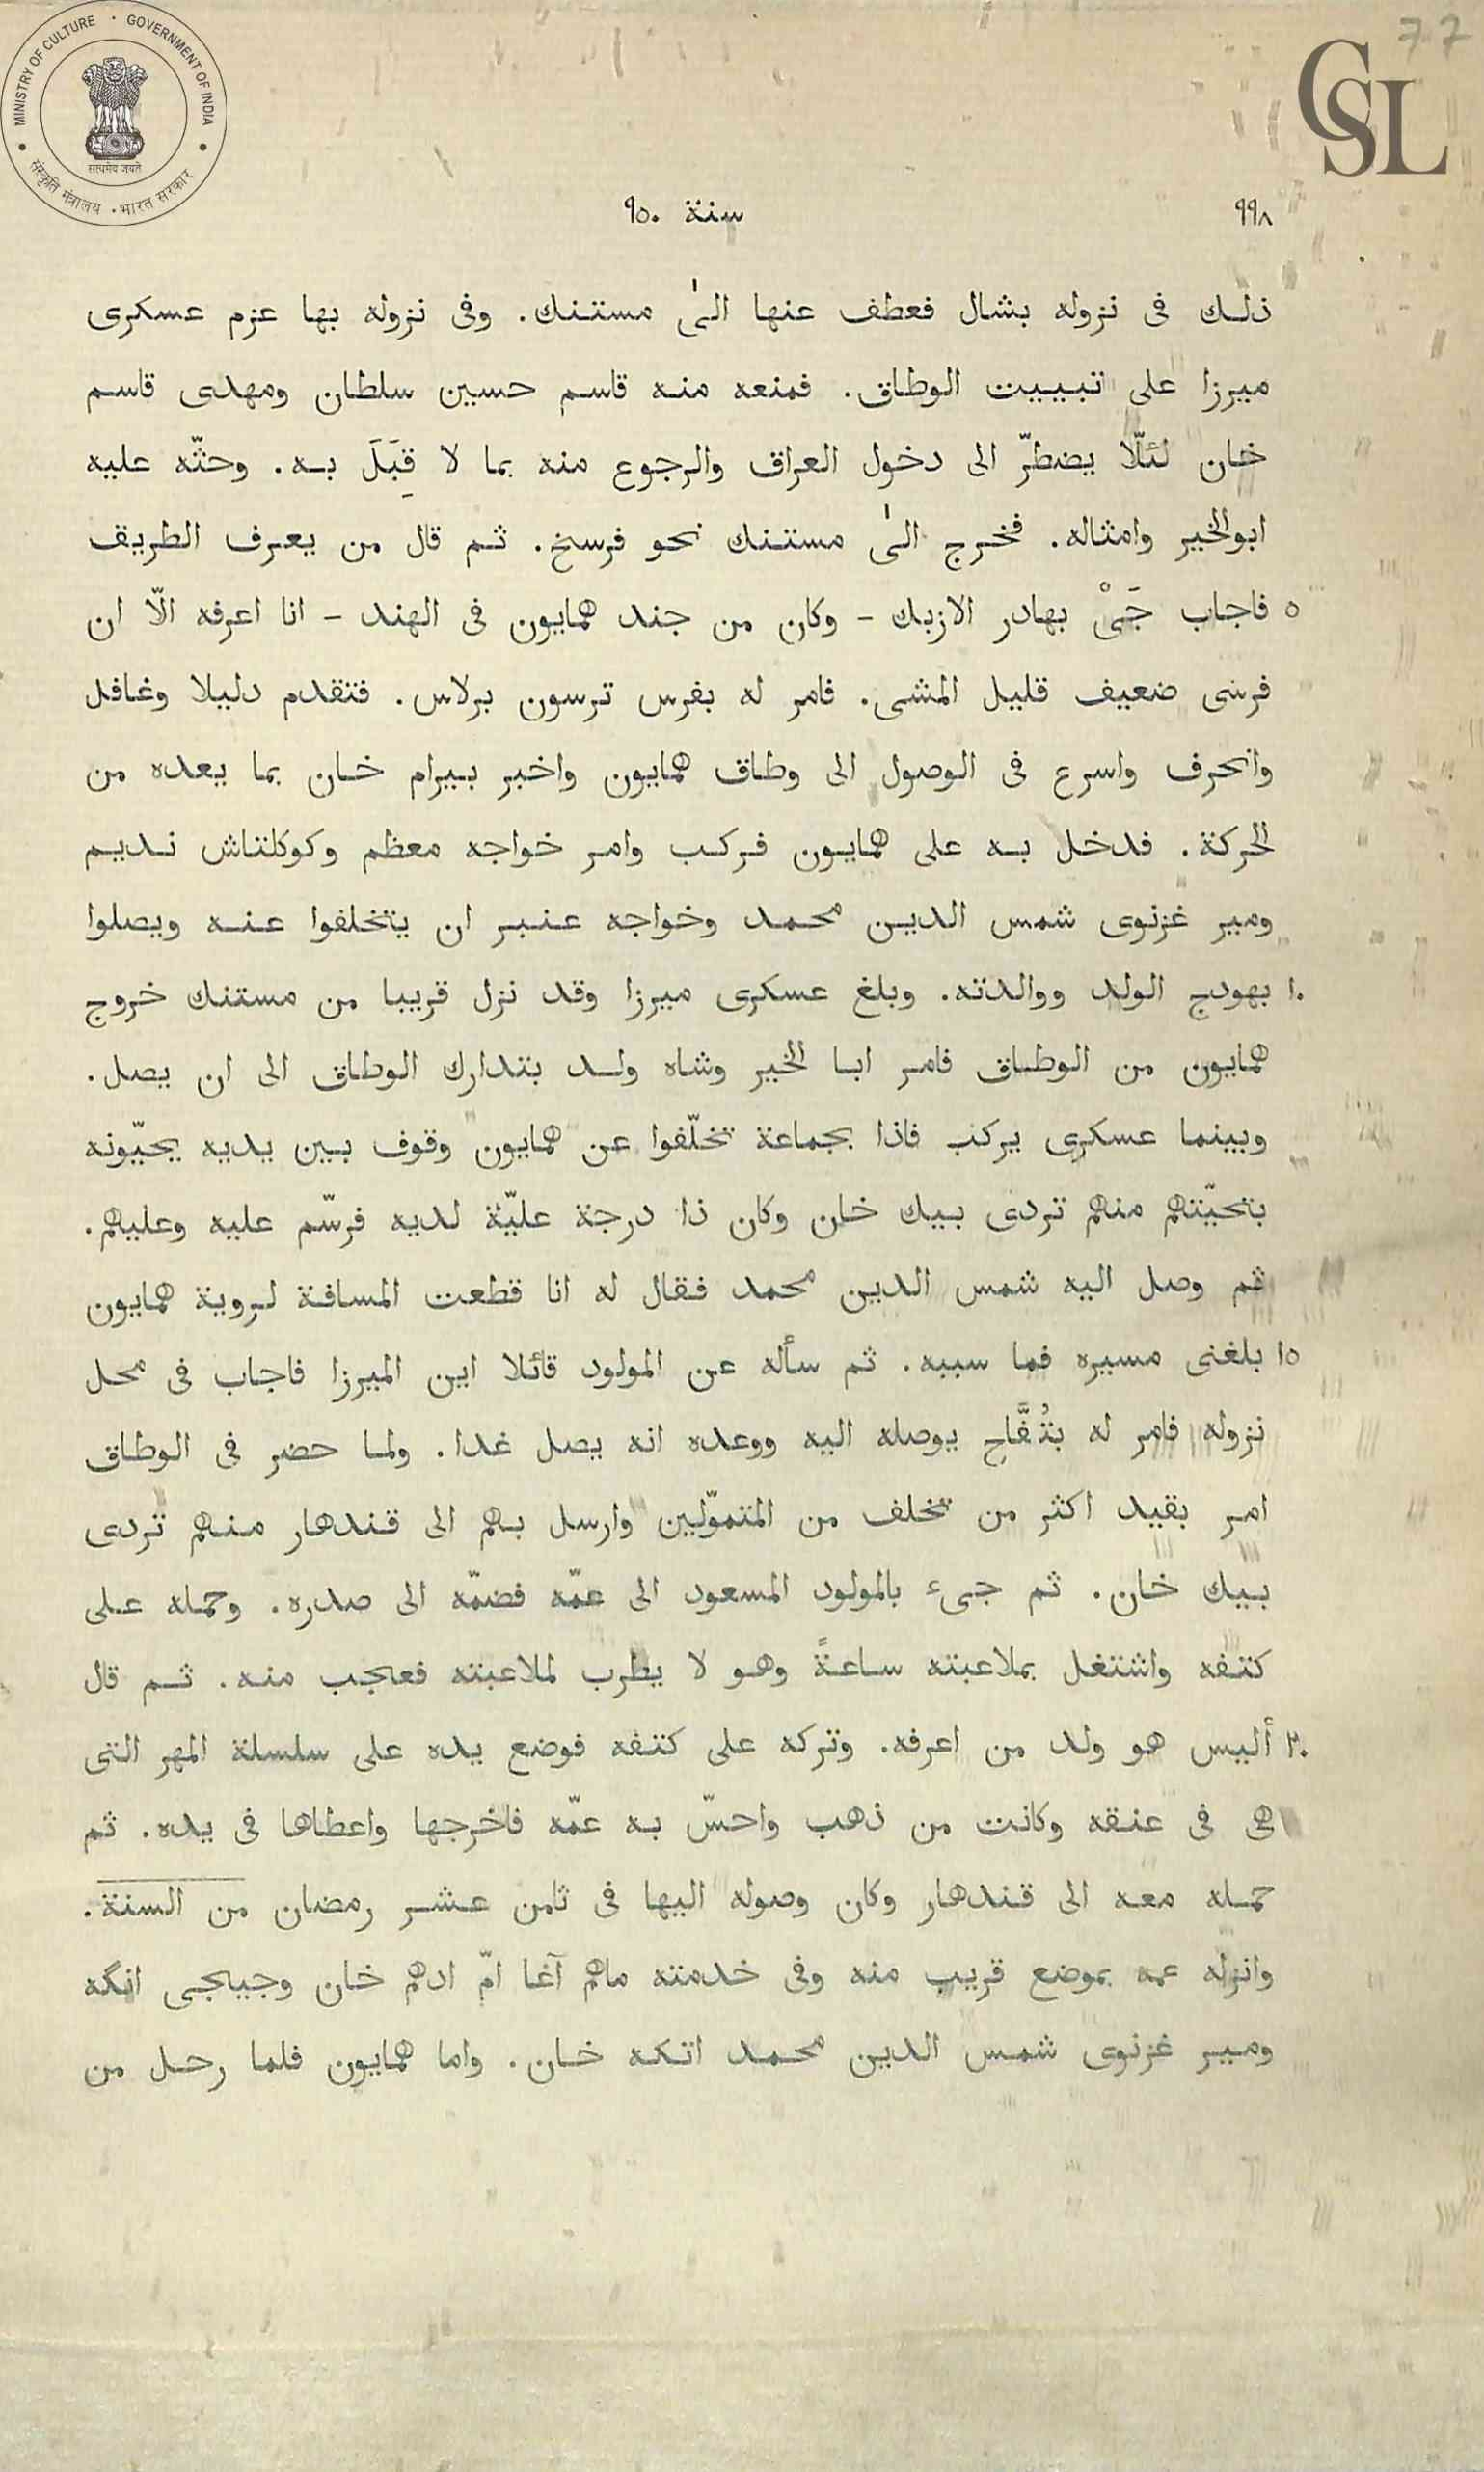 MINISTRY OF CULTURE · GOVERNMENT OF INDIA
सत्यमेव जयते
संस्कृति मंत्रालय · भारत सरकार
CSL
77
٩٩٨ سنة ٩٥٠
ذلك فى نزوله بشال فعطف عنها الىٰ مستنك. وفى نزوله بها عزم عسكرى
ميرزا على تبييت الوطاق. فمنعه منه قاسم حسين سلطان ومهدى قاسم
خان لئلّا يضطرّ الى دخول العراق والرجوع منه بما لا قِبَلَ به. وحثّه عليه
ابوالخير وامثاله. فخرج الىٰ مستنك نحو فرسخ. ثم قال من يعرف الطريق
٥ فاجاب جَىْ بهادر الازبك - وكان من جند همايون فى الهند - انا اعرفه الّا ان
فرسى ضعيف قليل المشى. فامر له بفرس ترسون برلاس. فتقدم دليلا وغافل
وانحرف واسرع فى الوصول الى وطاق همايون واخبر بيرام خان بما يعده من
الحركة. فدخل به على همايون فركب وامر خواجه معظم وكوكلتاش نديم
ومير غزنوى شمس الدين محمد وخواجه عنبر ان يتخلفوا عنه ويصلوا
١٠ بهودج الولد ووالدته. وبلغ عسكرى ميرزا وقد نزل قريبا من مستنك خروج
همايون من الوطاق فامر ابا الخير وشاه ولد بتدارك الوطاق الى ان يصل.
وبينما عسكرى يركب فاذا بجماعة تخلّفوا عن همايون وقوف بين يديه يحيّونه
بتحيّتهم منهم تردى بيك خان وكان ذا درجة عليّة لديه فرسّم عليه وعليهم.
ثم وصل اليه شمس الدين محمد فقال له انا قطعت المسافة لروية همايون
١٥ بلغنى مسيره فما سببه. ثم سأله عن المولود قائلا اين الميرزا فاجاب فى محل
نزوله فامر له بتُفَّاح يوصله اليه ووعده انه يصل غدا. ولما حضر فى الوطاق
امر بقيد اكثر من تخلف من المتموّلين وارسل بهم الى قندهار منهم تردى
بيك خان. ثم جىء بالمولود المسعود الى عمّه فضمّه الى صدره. وحمله على
كتفه واشتغل بملاعبته ساعةً وهو لا يطرب لملاعبته فعجب منه. ثم قال
٢٠ أليس هو ولد من اعرفه. وتركه على كتفه فوضع يده على سلسلة المهر التى
هى فى عنقه وكانت من ذهب واحسّ به عمّه فاخرجها واعطاها فى يده. ثم
حمله معه الى قندهار وكان وصوله اليها فى ثامن عشر رمضان من السنة.
وانزله عمه بموضع قريب منه وفى خدمته ماهم آغا امّ ادهم خان وجيجى انگه
ومير غزنوى شمس الدين محمد اتكه خان. واما همايون فلما رحل من